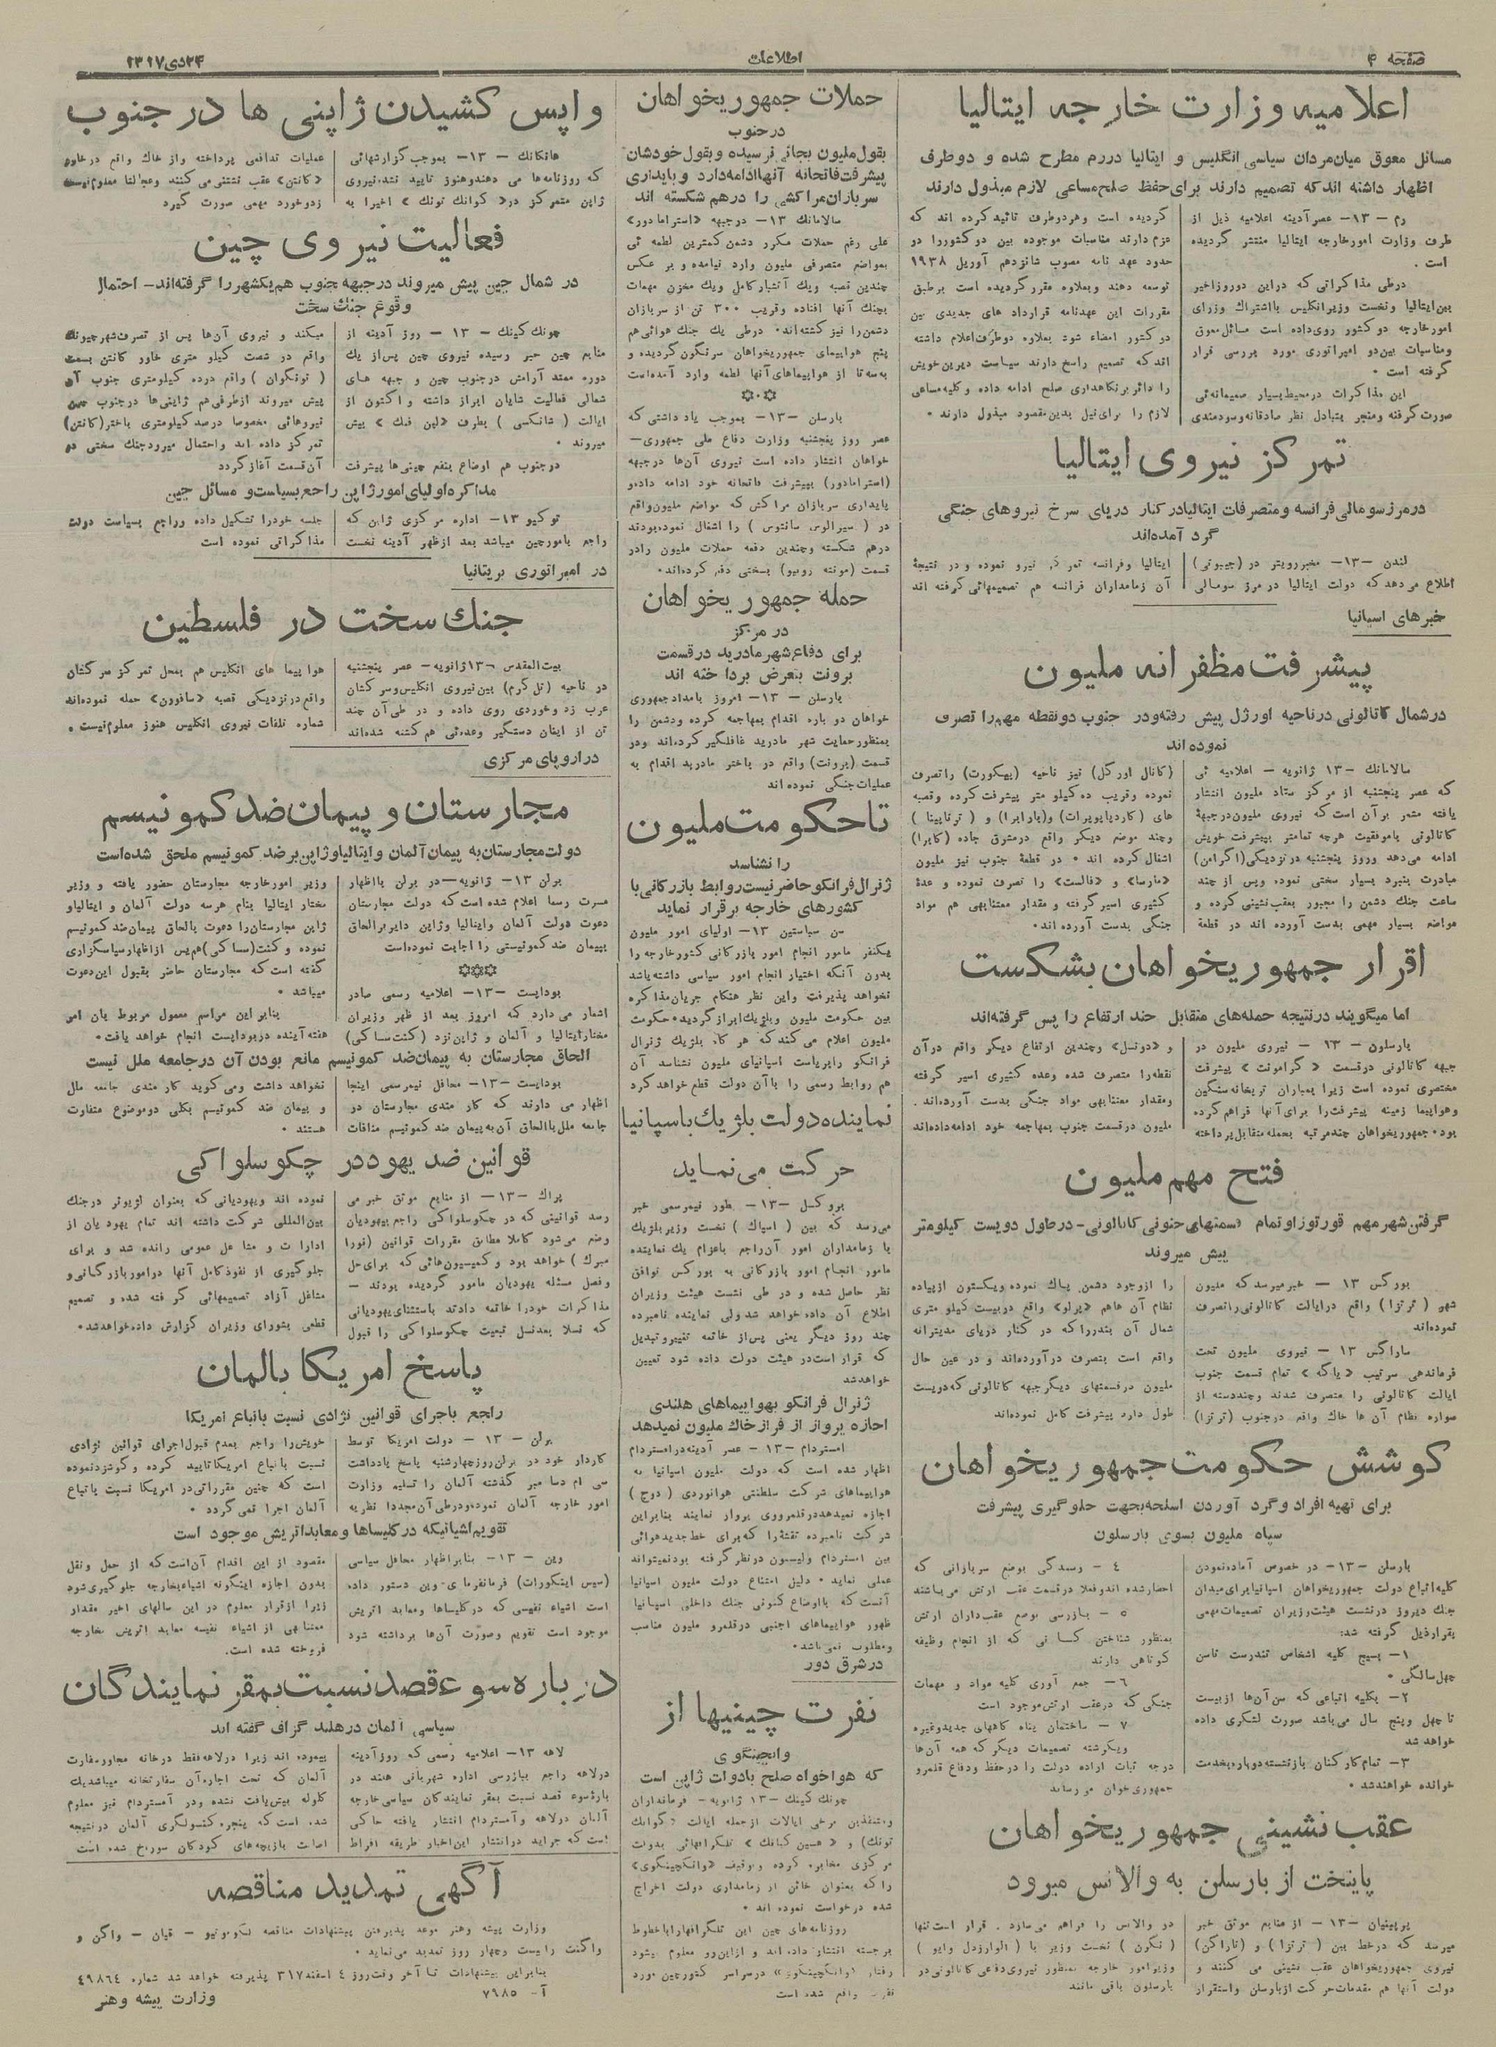 صفحه ۴
اطلاعات
۲۴ دی ۱۳۱۷
اعلامیه وزارت خارجه ایتالیا
مسائل معوق میان مردان سیاسی انگلیس و ایتالیا در رم مطرح شده و دو طرف
اظهار داشته اند که تصمیم دارند برای حفظ صلح مساعی لازم مبذول دارند
رم – ۱۳– عصر آدینه اعلامیه ذیل از
طرف وزارت امور خارجه ایتالیا منتشر گردیده
است .
درطی مذاکراتی که دراین دوروز اخیر
بین ایتالیا و نخست وزیر انگلیس با اشتراك وزرای
امور خارجه دو کشور روی داده است مسائل معوق
ومناسبات بین دو امپراتوری مورد بررسی قرار
گرفته است .
این مذاکرات در محیط بسیار صمیمانه ئی
صورت گرفته ومنجر بتبادل نظر صادقانه وسودمندی
گردیده است وهردو طرف تائید کرده اند که
عزم دارند مناسبات موجوده بین دو کشور را در
حدود عهد نامه مصوب شانزدهم آوریل ۱۹۳۸
توسعه دهند وبعلاوه مقرر گردیده است برطبق
مقررات این عهدنامه قرارداد های جدیدی بین
دو کشور امضاء شود بعلاوه دوطرف اعلام داشته
اند که تصمیم راسخ دارند سیاست دیرین خویش
را دائر بر نگاهداری صلح ادامه داده و کلیه مساعی
لازم را برای نیل بدین مقصود مبذول دارند .
تمرکز نیروی ایتالیا
در مرز سومالی فرانسه و متصرفات ایتالیا در کنار دریای سرخ نیروهای جنگی
گرد آمده اند
لندن –۱۳– مخبر رویتر در (جیبوتی)
اطلاع می دهد که دولت ایتالیا در مرز سومالی
ایتالیا وفرانسه تمرکز نیرو نموده و در نتیجة
آن زمامداران فرانسه هم تصمیمهائی گرفته اند
خبر های اسپانیا
پیشرفت مظفرانه ملیون
در شمال کاتالونی در ناحیه اورژل پیش رفته و در جنوب دو نقطه مهم را تصرف
نموده اند
سالامانك –۱۳ ژانویه – اعلامیه ئی
که عصر پنجشنبه از مرکز ستاد ملیون انتشار
یافته مشعر بر آن است که نیروی ملیون در جبهة
کاتالونی با موفقیت هرچه تمامتر بپیشرفت خویش
ادامه می دهد وروز پنجشنبه در نزدیکی (اگرامن)
مبادرت بنبرد بسیار سختی نموده وپس از چند
ساعت جنك دشمن را مجبور بعقب نشینی کرده و
مواضع بسیار مهمی بدست آورده اند در قطعة
(کانال اورگل) نیز ناحیه (بیکورت) را تصرف
نموده و قریب ده کیلو متر پیشرفت کرده و قصبه
وچند موضع دیگر واقع درمشرق جاده (کابرا)
اشغال کرده اند . در قطعة جنوب نیز ملیون
«مارسا» و «فالست» را تصرف نموده و عدة
کثیری اسیر گرفته و مقدار معتنابهی هم مواد
جنگی بدست آورده اند.
اقرار جمهوریخواهان بشکست
اما میگویند در نتیجه حمله های متقابل چند ارتفاع را پس گرفته اند
بارسلون– ۱۳ – نیروی ملیون در
جبهه کاتالونی در قسمت « گرامونت » پیشرفت
مختصری نموده است زیرا بمباران توپخانه سنگین
وهواپیما زمینه پیشرفت را برای آنها فراهم کرده
بود. جمهوریخواهان چند مرتبه بحمله متقابل پرداخته
و «دونسل» وچندین ارتفاع دیگر واقع در آن
نقطه را متصرف شده وعده کثیری اسیر گرفته
ومقدار معتنابهی مواد جنگی بدست آورده اند.
ملیون در قسمت جنوب بمهاجمه خود ادامه داده اند
فتح مهم ملیون
گرفتن شهر مهم تورتوزا و تمام قسمتهای جنوبی کاتالونی–در طول دویست کیلومتر
پیش میروند
بورگس ۱۳ – خبر میرسد که ملیون
شهر ( ترتزا ) واقع در ایالت کاتالونی را تصرف
نموده اند
ساراگس ۱۳ – نیروی ملیون تحت
فرماندهی سرتیپ «یاگه» تمام قسمت جنوب
ایالت کاتالونی را متصرف شدند وچند دسته از
سواره نظام آن ها خاك واقع در جنوب (ترتزا)
را از وجود دشمن پاك نموده ویکستون از پیاده
نظام آن ها هم «پرلو» واقع دویست کیلو متری
شمال آن بندر را که در کنار دریای مدیترانه
واقع است بتصرف درآورده اند و در عین حال
ملیون در قسمتهای دیگر جبهه کاتالونی که دویست
طول دارد پیشرفت کامل نموده اند
کوشش حکومت جمهوریخواهان
برای تهیه افراد و گرد آوردن اسلحه بجهت جلوگیری پیشرفت
سپاه ملیون بسوی بارسلون
بارسلن –۱۳– در خصوص آماده نمودن
کلیه اتباع دولت جمهوریخواهان اسپانیا برای میدان
جنك دیروز در نشست هیئت وزیران تصمیمات مهمی
بقرار ذیل گرفته شد:
۱– بسیج کلیه اشخاص تندرست تا سن
چهل سالگی .
۲– بکلیه اتباعی که سن آن ها از بیست
تا چهل وپنج سال می باشد صورت لشگری داده
خواهد شد
۳– تمام کارکنان بازنشسته دوباره بخدمت
خوانده خواهند شد .
٤ – رسدگی بوضع سربازانی که
احضار شده اند وفعلا در قسمت عقب ارتش می باشند
۵ – بازرسی بوضع عقب داران ارتش
بمنظور شناختن کسانی که از انجام وظیفه
کوتاهی دارند
۶– جمع آوری کلیه مواد و مهمات
جنگی که در عقب ارتش موجود است
۷ – ساختمان پناه گاههای جدید وغیره
ویکرشته تصمیمات دیگر که همه آن ها
درجه ثبات اراده دولت را در حفظ ودفاع قلمرو
جمهوری خوان می رساند
عقب نشینی جمهوریخواهان
پایتخت از بارسلن به والانس میرود
پرپینیان –۱۳– از منابع موثق خبر
میرسد که در خط بین ( ترتزا ) و (تاراگن)
نیروی جمهوریخواهان عقب نشینی می کنند و
دولت آنها هم مقدمات حرکت از بارسلن واستقرار
در والانس را فراهم می سازد . قرار است تنها
( نگرن ) نخست وزیر با ( الوارزدل وایو )
وزیر امور خارجه بمنظور نیروی دفاعی کاتالونی در
بارسلون باقی مانند
حملات جمهوریخواهان
در جنوب
بقول ملیون بجائی نرسیده و بقول خودشان
پیشرفت فاتحانه آنها ادامه دارد و پایداری
سربازان مراکشی را درهم شکسته اند
سالامانك –۱۳– در جبهه «استرامادور»
علی رغم حملات مکرر دشمن کمترین لطمه ئی
بمواضع متصرفی ملیون وارد نیامده و بر عکس
چندین قصبه ویك آتشبار کامل ویك مخزن مهمات
بچنك آنها افتاده وقریب ۳۰۰ تن از سربازان
دشمن را نیز کشته اند. در طی یك جنك هوائی هم
پنج هواپیمای جمهوریخواهان سرنگون گردیده و
به سه تا از هواپیماهای آنها لطمه وارد آمده است
بارسلن –۱۳– بموجب یاد داشتی که
عصر روز پنجشنبه وزارت دفاع ملی جمهوری–
خواهان انتشار داده است نیروی آن ها در جبهه
(استرامادور) بپیشرفت فاتحانه خود ادامه داده و
پایداری سربازان مراکش که مواضع ملیون واقع
در ( سیرالوس سانتوس ) را اشغال نموده بودند
درهم شکسته وچندین دفعه حملات ملیون را در
قسمت (مونته روبیو) بسختی دفع کرده اند.
حمله جمهوریخواهان
در مرکز
برای دفاع شهر مادرید در قسمت
برونت بتعرض پرداخته اند
بارسلن – ۱۳– امروز بامداد جمهوری
خواهان دو باره اقدام بمهاجمه کرده ودشمن را
بمنظور حمایت شهر مادرید غافلگیر کرده اند ودر
قسمت (برونت) واقع در باختر مادرید اقدام به
عملیات جنگی نموده اند
تا حکومت ملیون
را نشناسد
ژنرال فرانکو حاضر نیست روابط بازرگانی با
کشورهای خارجه برقرار نماید
سن سباستین ۱۳– اولیای امور ملیون
یکنفر مامور انجام امور بازرگانی کشور خارجه را
بدون آنکه اختیار انجام امور سیاسی داشته باشد
نخواهد پذیرفت واین نظر هنگام جریان مذاکره
بین حکومت ملیون وبلژیك ابراز گردید. حکومت
ملیون اعلام می کند که هرگاه بلژیك ژنرال
فرانکو را بریاست اسپانیای ملیون نشناسد آن
هم روابط رسمی را با آن دولت قطع خواهد کرد
نماینده دولت بلژیك باسپانیا
حرکت می نماید
بروکسل –۱۳– بطور نیمرسمی خبر
می رسد که بین ( اسپاك ) نخست وزیر بلژیك
با زمامداران امور آن راجع باعزام یك نماینده
مامور انجام امور بازرگانی به بورگس توافق
نظر حاصل شده و در طی نشست هیئت وزیران
اطلاع آن داده خواهد شد ولی نماینده نامبرده
چند روز دیگر یعنی پس از خاتمه تغییر وتبدیل
که قرار است در هیئت دولت داده شود تعیین
خواهد شد
ژنرال فرانکو بهواپیماهای هلندی
اجازه پرواز از فراز خاك ملیون نمیدهد
امستردام –۱۳– عصر آدینه در امستردام
اظهار شده است که دولت ملیون اسپانیا به
هواپیماهای شرکت سلطنتی هوانوردی ( دوچ )
اجازه نمیدهد در قلمرو وی پرواز نمایند بنابراین
شرکت نامبرده نقشة را که برای خط جدید هوائی
بین امستردام ولیسبون در نظر گرفته بود نمیتواند
عملی نماید . دلیل امتناع دولت ملیون اسپانیا
آنست که با اوضاع کنونی جنك داخلی اسپانیا
ظهور هواپیماهای اجنبی در قلمرو ملیون مناسب
ومطلوب نمی باشد.
در شرق دور
نفرت چینیها از
وانچینگوی
که هواخواه صلح با دولت ژاپن است
چونك کینك –۱۳ ژانویه– فرمانداران
ومتنفذین برخی ایالات از جمله ایالت «کوانك
تونك» و «هسین کیانك» تلگرافهائی بدولت
مرکزی مخابره کرده وتوقیف «وانچینگوی»
را که بعنوان خائن از زمامداری دولت اخراج
شده درخواست نموده اند .
روزنامه های چین این تلگرافها را با خطوط
برجسته انتشار داده اند و از این رو معلوم میشود
رفتار «وانچینگوی» در سراسر کشور چین مورد
نفرت واقع شده است
واپس کشیدن ژاپنی ها در جنوب
هانکانك – ۱۳– بموجب گزارشهائی
که روزنامه ها می دهند وهنوز تایید نشد، نیروی
ژاپن متمرکز در « کوانك تونك » اخیرا به
عملیات تدافعی پرداخته واز خاك واقع در خاور
«کانتن» عقب نشینی می کنند وعجالتا معلوم نیست
زد و خورد مهمی صورت گیرد
فعالیت نیروی چین
در شمال چین پیش میروند در جبهه جنوب هم یکشهر را گرفته اند– احتمال
وقوع جنك سخت
چونك کینك – ۱۳ – روز آدینه از
منابع چین خبر رسیده نیروی چین پس از یك
دوره ممتد آرامش در جنوب چین و جبهه های
شمالی فعالیت شایان ابراز داشته و اکنون از
ایالت ( شانکسی ) بطرف «لین فنك » پیش
میروند .
در جنوب هم اوضاع بنفع چینی ها پیشرفت
میکند و نیروی آن ها پس از تصرف شهر
واقع در شصت کیلو متری خاور کانتن بسمت
( تونگوان ) واقع در ده کیلومتری جنوب آن
پیش میروند از طرفی هم ژاپنی ها در جنوب چین
نیروهائی مخصوصا در صد کیلومتری باختر (کانتن)
تمرکز داده اند واحتمال میرود جنك سختی در
آن قسمت آغاز گردد
مذاکره اولیای امور ژاپن راجع بسیاست و مسائل چین
توکیو ۱۳– اداره مرکزی ژاپن که
راجع بامور چین میباشد بعد از ظهر آدینه نخست
جلسه خود را تشکیل داده وراجع بسیاست دولت
مذاکراتی نموده است
در امپراتوری بریتانیا
جنك سخت در فلسطین
بیت المقدس –۱۳ ژانویه– عصر پنجشنبه
در ناحیه (تل کرم) بین نیروی انگلیس وسرکشان
عرب زد وخوردی روی داده و در طی آن چند
تن از اینان دستگیر وعده ئی هم کشته شده اند
هواپیما های انگلیس هم بمحل تمرکز سرکشان
واقع در نزدیکی قصبه «سافورن» حمله نموده اند
شماره تلفات نیروی انگلیس هنوز معلوم نیست .
در اروپای مرکزی
مجارستان و پیمان ضد کمونیسم
دولت مجارستان به پیمان آلمان و ایتالیا و ژاپن بر ضد کمونیسم ملحق شده است
برلن ۱۳– ژانویه– در برلن با اظهار
مسرت رسما اعلام شده است که دولت مجارستان
دعوت دولت آلمان وایتالیا وژاپن دایر بر الحاق
بپیمان ضد کمونیستی را اجابت نموده است
بوداپست –۱۳– اعلامیه رسمی صادر
اشعار می دارد که امروز بعد از ظهر وزیران
مختار ایتالیا و آلمان و ژاپن نزد (کنت ساکی)
وزیر امور خارجه مجارستان حضور یافته و وزیر
مختار ایتالیا بنام هر سه دولت آلمان و ایتالیا و
ژاپن مجارستان را دعوت بالحاق پیمان ضد کمونیسم
نموده وکنت (ساکی) هم پس از اظهار سپاسگزاری
گفته است که مجارستان حاضر بقبول این دعوت
میباشد .
بنابر این مراسم معمول مربوط باین امر
هفته آینده در بوداپست انجام خواهد یافت.
الحاق مجارستان به پیمان ضد کمونیسم مانع بودن آن در جامعه ملل نیست
بوداپست –۱۳– محافل نیمرسمی اینجا
اظهار می دارند که کار مندی مجارستان در
جامعه ملل با الحاق آن به پیمان ضد کمونیسم منافات
نخواهد داشت ومی گوید کار مندی جامعه ملل
و پیمان ضد کمونیسم بکلی دو موضوع متفاوت
هستند .
قوانین ضد یهود در چکوسلواکی
پراك –۱۳– از منابع موثق خبر می
رسد قوانینی که در چکوسلواکی راجع بیهودیان
وضع می شود کاملا مطابق مقررات قوانین (نورا
مبرك ) خواهد بود و کمیسیون هائی که برای حل
وفصل مسئله یهودیان مامور گردیده بودند –
مذاکرات خود را خاتمه دادند باستثنای یهودیانی
که نسلا بعد نسل تبعیت چکوسلواکی را قبول
نموده اند ویهودیانی که بعنوان لژیونر در جنك
بین المللی شرکت داشته اند تمام یهودیان از
ادارات و مشاغل عمومی رانده شد و برای
جلوگیری از نفوذ کامل آنها در امور بازرگانی و
مشاغل آزاد تصمیمهائی گرفته شده و تصمیم
قطعی بشورای وزیران گزارش داده خواهد شد.
پاسخ امریکا بالمان
راجع باجرای قوانین نژادی نسبت باتباع امریکا
برلن – ۱۳ – دولت امریکا توسط
کاردار خود در برلن روز چهارشنبه پاسخ یادداشت
سی ام دسامبر گذشته آلمان را تسلیم وزارت
امور خارجه آلمان نموده و در طی آن مجددا نظریه
خویش را راجع بعدم قبول اجرای قوانین نژادی
نسبت باتباع امریکا تایید کرده و گوشزد نموده
است که چنین مقرراتی در امریکا نسبت باتباع
آلمان اجرا نمی گردد .
تقویم اشیائیکه در کلیساها و معابد اتریش موجود است
وین – ۱۳– بنابر اظهار محافل سیاسی
(سیس اینکورات) فرمانفرمای وین دستور داده
است اشیاء نفیسی که در کلیساها ومعابد اتریش
موجود است تقویم وصورت آن ها برداشته شود
مقصود از این اقدام آن است که از حمل ونقل
بدون اجازه اینگونه اشیاء بخارجه جلوگیری شود
زیرا از قرار معلوم در این سالهای اخیر مقدار
معتنابهی از اشیاء نفیسه معابد اتریش بخارجه
فروخته شده است.
درباره سوء قصد نسبت بمقر نمایندگان
سیاسی آلمان در هلند گزاف گفته اند
لاهه ۱۳– اعلامیه رسمی که روز آدینه
در لاهه راجع ببازرسی اداره شهربانی هلند در
بارة سوء قصد نسبت بمقر نمایندگان سیاسی خارجه
آلمان در لاهه وآمستردام انتشار یافته حاکی
است که جراید در انتشار این اخبار طریقه افراط
پیموده اند زیرا در لاهه فقط در خانه مجاور سفارت
آلمان که تحت اجاره آن سفارتخانه میباشد یك
گلوله بیش یافت نشده ودر آمستردام نیز معلوم
شده است که پنجره کنسولگری آلمان در نتیجه
اصابت بازیچه های کودکان سوراخ شده است
آگهی تمدید مناقصه
وزارت پیشه وهنر موعد پذیرفتن پیشنهادات مناقصه لکوموتیو – قپان – واگن و
واگنت را بیست وچهار روز تمدید می نماید .
بنابراین پیشنهادات تا آخر وقت روز ٤ اسفند ۳۱۷ پذیرفته خواهد شد شماره ٤۹۸٦٤
آ– ۷۹۸۵
وزارت پیشه و هنر